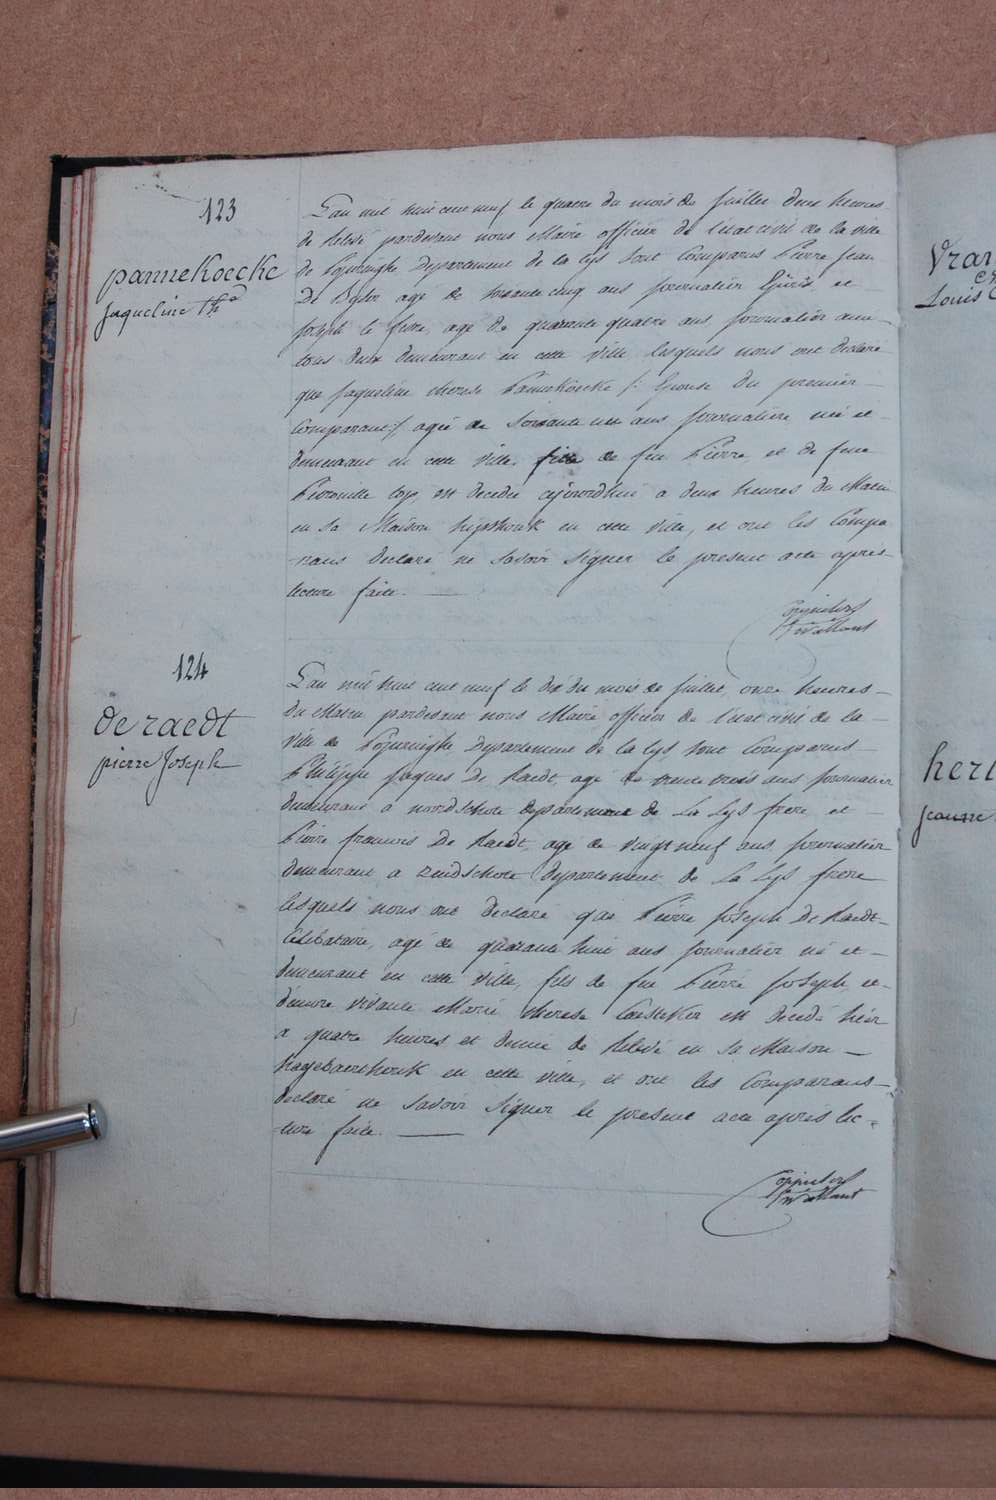 123
pannekoecke
Jaqueline Th^a
L'an mil huit cent neuf le quatre du mois de Juillet deux heures
de Relevé pardevant nous Maire officier de l'état civil de la ville
de Poperinghe Departement de la Lys sont Comparus Pierre Jean
De age de soixante cinq ans journalier et
Joseph le fevre, agé de quarante quatre ans, journalier
tous deux demeurant en cette ville lesquels nous ont declaré
que Jaqueline therese Pannekoecke /: Epouse du premier
Comparant :/ agée de soixante un ans journalière née et
demeurant en cette ville, fille de feu Pierre, et de feue
Petronille top, est decedée cejourd'hui a deux heures du Matin
en sa Maison en cette ville, et ont les Compa
rans declaré ne savoir signer le present acte apres
lecture faite.
124
de raedt
pierre Joseph
L'an mil huit cent neuf le dix du mois de Juillet, onze heures
du Matin pardevant nous Maire officier de l'état civil de la
ville de Poperinghe Departement de la Lys, sont Comparus
Philippe Jaques De Raedt, agé de trente trois ans journalier
demeurant a noordschote departement de La Lys frere et
Pierre francois De Raedt, age de vingt neuf ans, journalier
demeurant a zuidschote Departement de La Lys frere
lesquels nous ont declaré que Pierre Joseph De Raedt
Célibataire, agé de quarante huit ans journalier né et
demeurant en cette ville, fils de feu Pierre Joseph, et
d'encore vivante Marie therese est decedé hier
a quatre heures et demie de Relevé en sa Maison
en cette ville, et ont les Comparans
declaré ne savoir signer le present acte apres lec-
ture faite.
Vran
Louis
herl
Jeanne